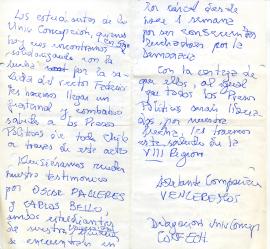 Los estudiantes de la
Univ Concepción, quienes
hoy nos encontramos
solidarizando con la
lucha por la sa-
lida del rector Federici
les hacemos llegar un
fraternal y combativo
saludo a los Presos
Políticos de todo Chile
a través de este acto
Quisiéramos rendir
nuestro testimonio
por OSCAR PALLERES
y CARLOS BELLO,
ambos estudiantes
de nuestra
se encuentran en
Por cárcel desde
hace 1 semana
por ser consecuentes
luchadores por la
Democracia
Con la certeza de
que ellos, al igual
que todos los Presos
Políticos serán libera-
dos por nuestro
les traemos
este saludo de la
VIII Región
Adelante Compañeros
VENCEREMOS
Delegación Univ Concep